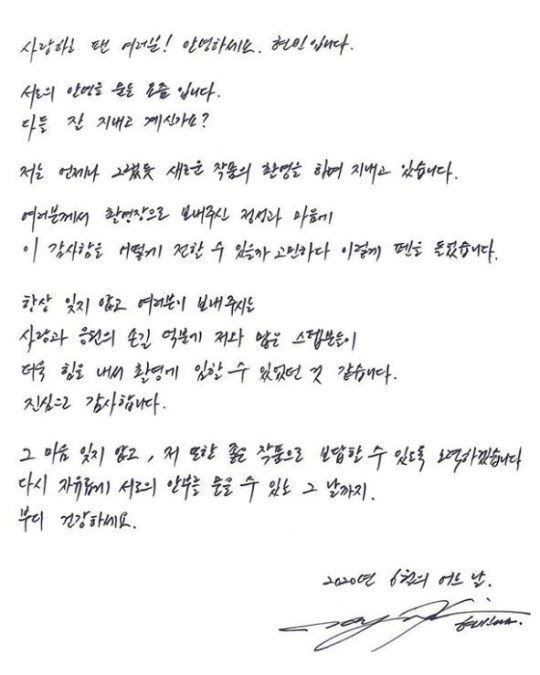 사랑하는 팬 여러분! 안녕하세요. 현빈입니다.
서로의 안녕을 묻는 요즘입니다.
다들 잘 지내고 계신가요?
저는 언제나 그랬듯 새로운 작품의 촬영을 하며 지내고 있습니다.
여러분께서 촬영장으로 보내주신 정성과 마음에
이 감사함을 어떻게 전할 수 있을까 고민하다 이렇게 펜을 들었습니다.
항상 잊지 않고 여러분이 보내주시는
사랑과 응원의 손길 덕분에 저와 많은 스텝분들이
더욱 힘을 내서 촬영에 임할 수 있었던 것 같습니다.
진심으로 감사합니다.
그 마음 잊지 않고, 저 또한 좋은 작품으로 보답할 수 있도록 노력하겠습니다
다시 자유롭게 서로의 안부를 물을 수 있는 그 날까지.
부디 건강하세요.
2020년 6월의 어느 날.